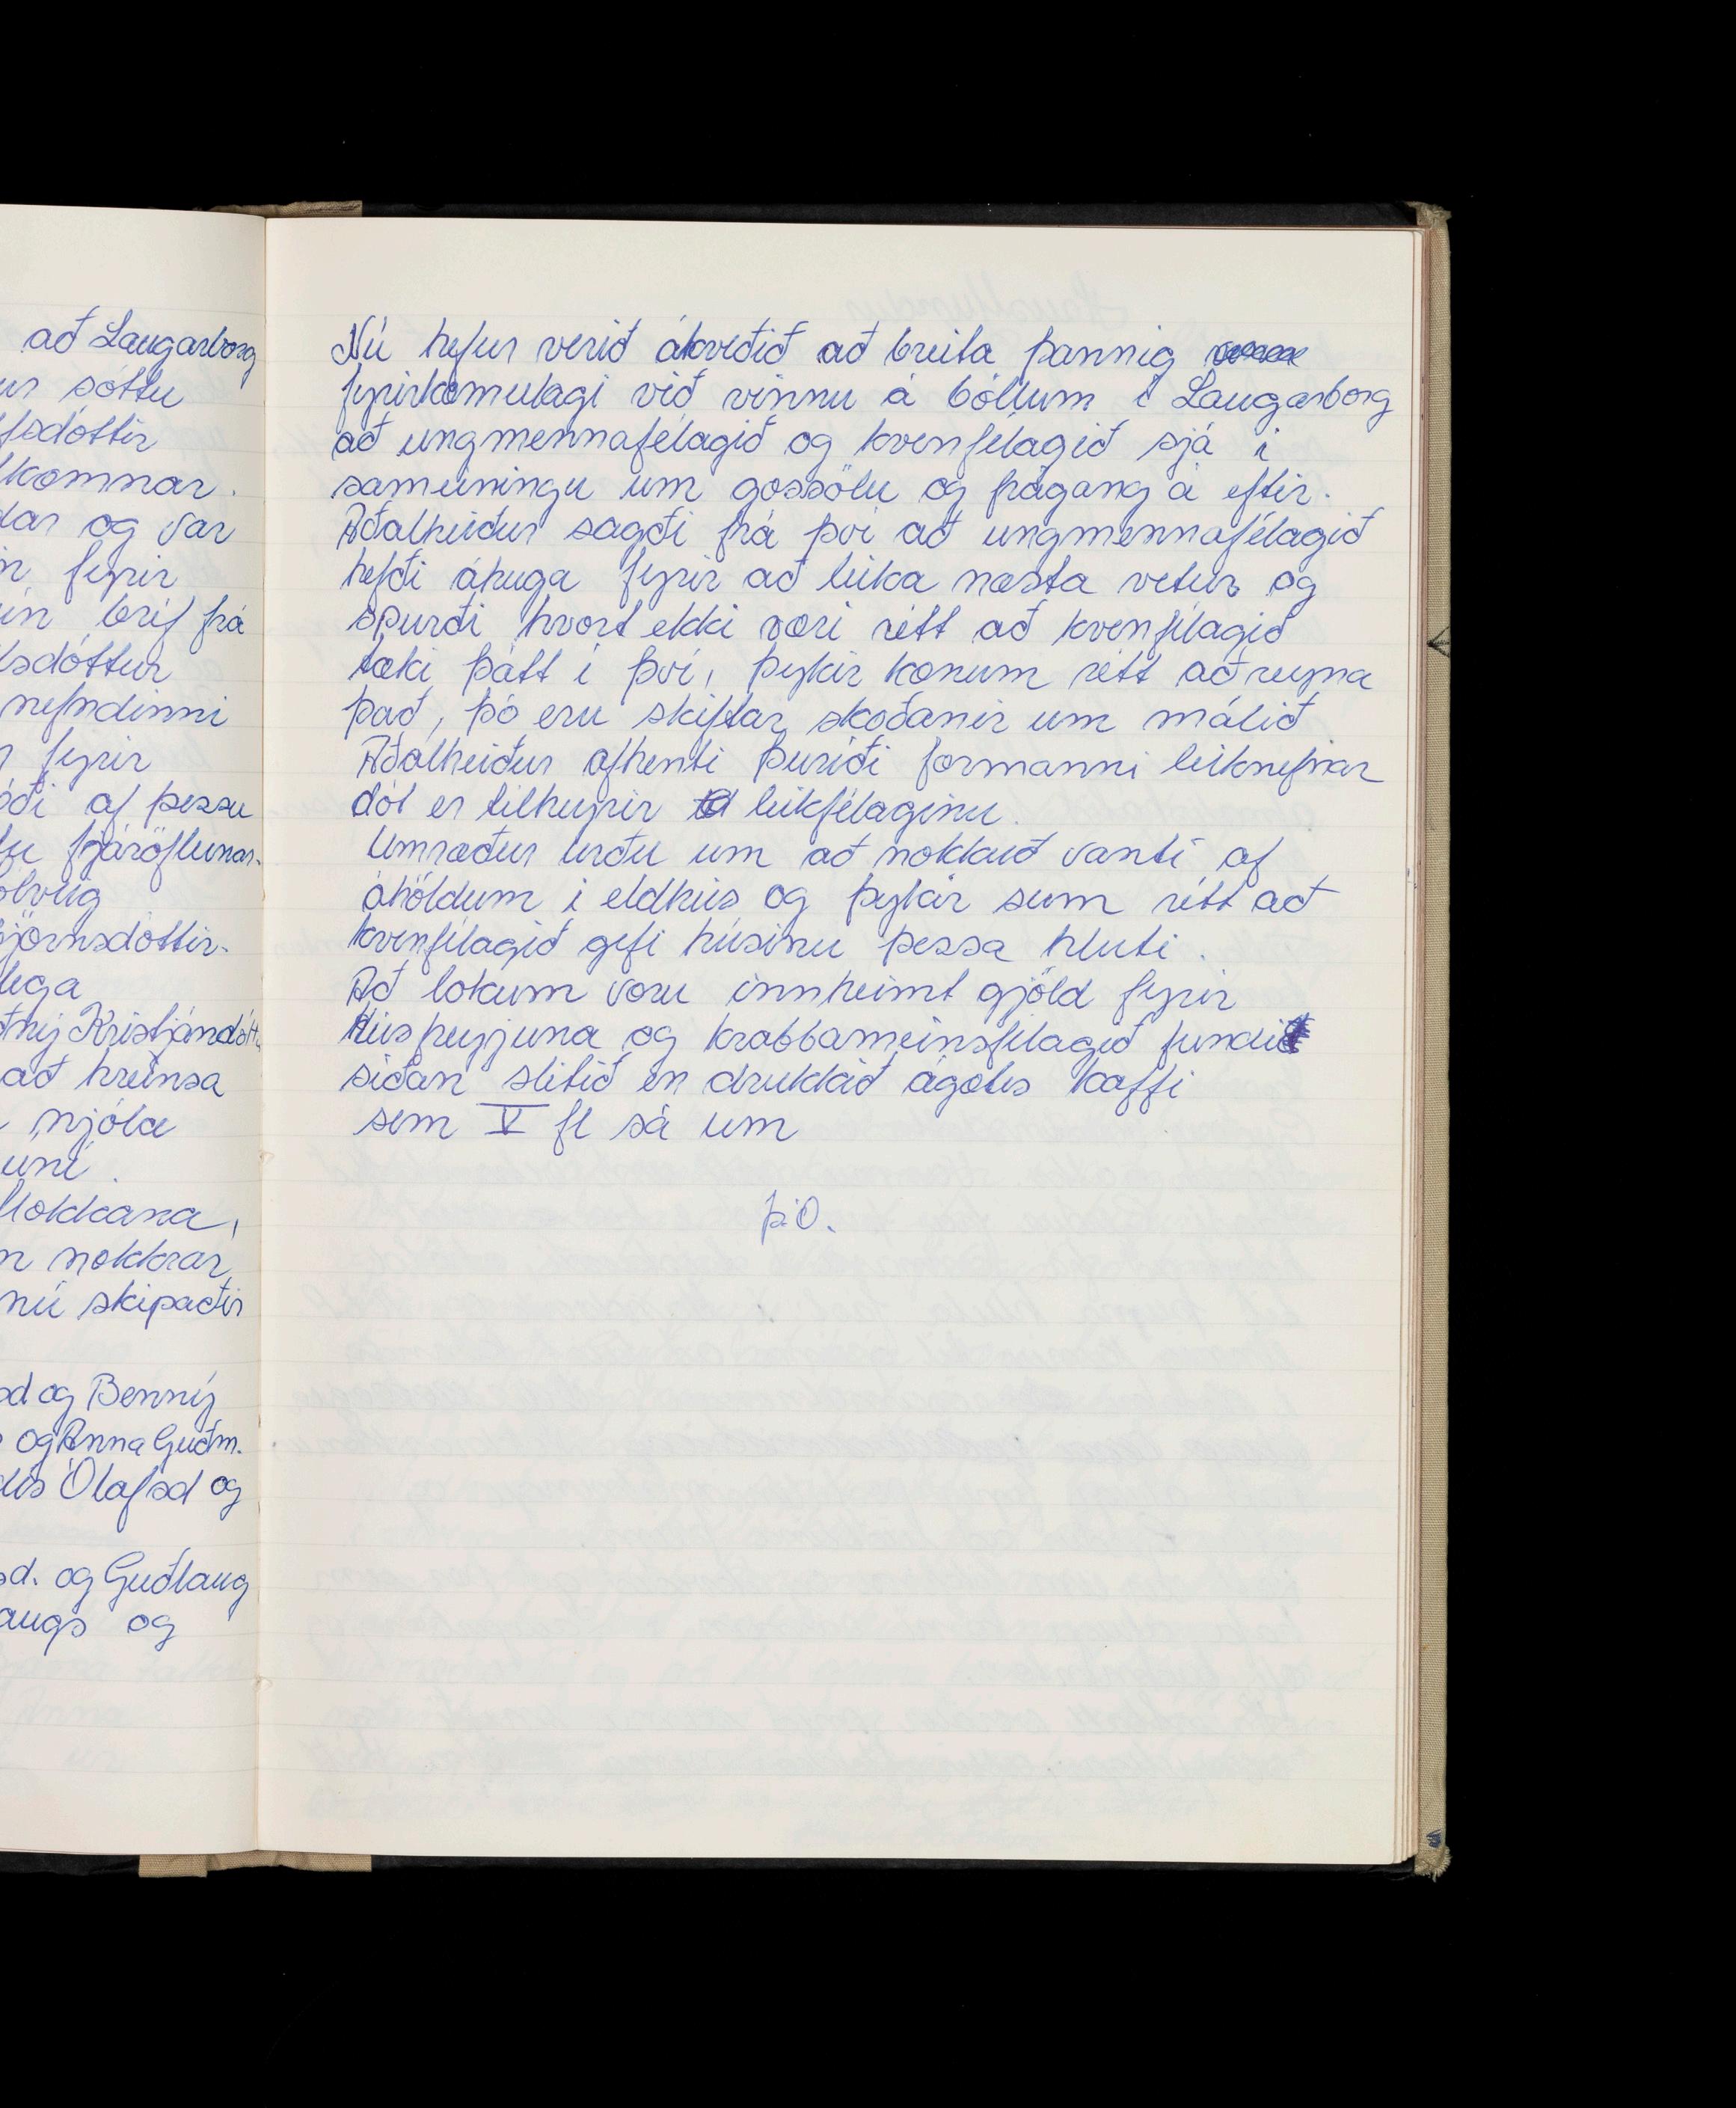 að Laugarborg
ur sóttu
fsdóttir
lkomnar.
dar og var
n fyrir
ín bréf frá
lsdóttur
nefndinni
n fyrir
óði af þessu
lu fjáröflunar-
ólveig
björnsdóttir
lega
ðný Kristjánsdótt.
að hreinsa
njóla
uní.
flokkana,
m nokkrar
nú skipaðir
sd og Benný
og Anna Guðm.
dís Ólafsd og
sd. og Guðlaug
augs og
Nú hefur verið ákveðið að breita þannig
fyrirkomulagi við vinnu á böllum í Laugarborg
að ungmennafélagið og kvenfélagið sjá í
sameiningu um gossölu og frágang á eftir.
Aðalheiður sagði frá því að ungmennafélagið
hefði áhuga fyrir að leika næsta vetur og
spurði hvort ekki væri rétt að kvenfélagið
tæki þátt í því, þykir konum rétt að reyna
það, þó eru skiftar skoðanir um málið
Aðalheiður afhenti Þuríði formanni leiknefnar
dót er tilheyrir leikfélaginu.
Umræður urðu um að nokkuð vanti af
áhöldum í eldhús og þykir sum rétt að
kvenfélagið gefi húsinu þessa hluti.
Að lokum voru innheimt gjöld fyrir
Húsfreyjuna og krabbameinsfélagið fundi
síðan slitið en drukkið ágætis kaffi
sem V fl sá um
Þ.O.